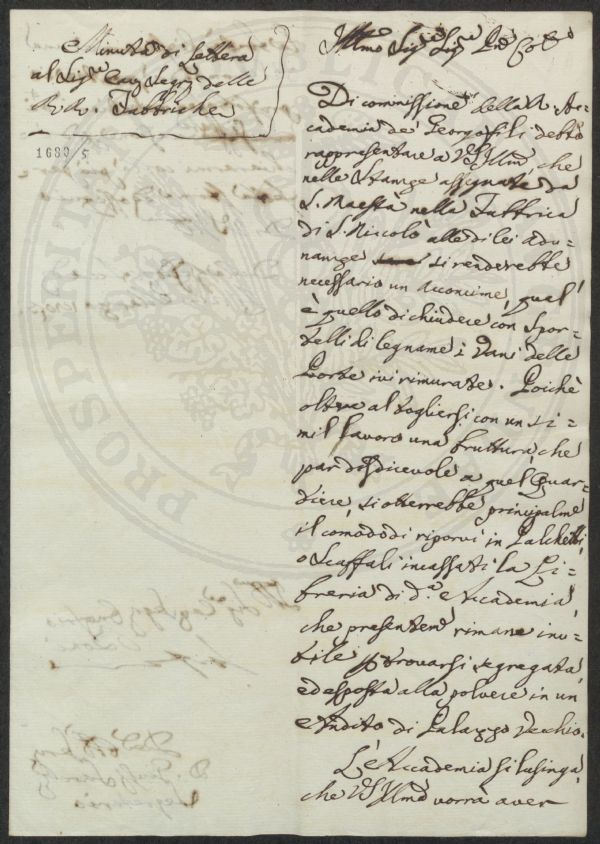 Minuta di Lettera
al Sig.re Cav. Segr. delle
RR. Fabbriche
1680/5
Ill.mo Sig.re Sig.re P.ron Col.mo
Di commissione della R. Ac=
cademia de' Georgofili debbo
rappresentare a VS. Ill.ma che
nelle stanze assegnate da
S. Maestà nella Fabbrica
di S. Niccolò alle di lei adu=
nanze si renderebbe
necessario un Acconcime, qual'
è quello di chiudere con Spor=
telli di legname i vani delle
Porte ivi rimurate. Poichè
oltre al togliersi con un si=
mil lavoro una bruttura che
par disdicevole a quel Quar=
tiere, si otterrebbe principalm.e
il comodo di riporvi in Palchetti,
o Scaffali incassati la Li=
breria di d.a Accademia,
che presentem.e rimane inu=
tile p. trovarsi segregata,
ed esposta alla polvere in un
Andito di Palazzo Vecchio.
L'Accademia si lusinga,
che VS. Ill.ma vorrà aver
PROSPERITATI
PUBLICAE